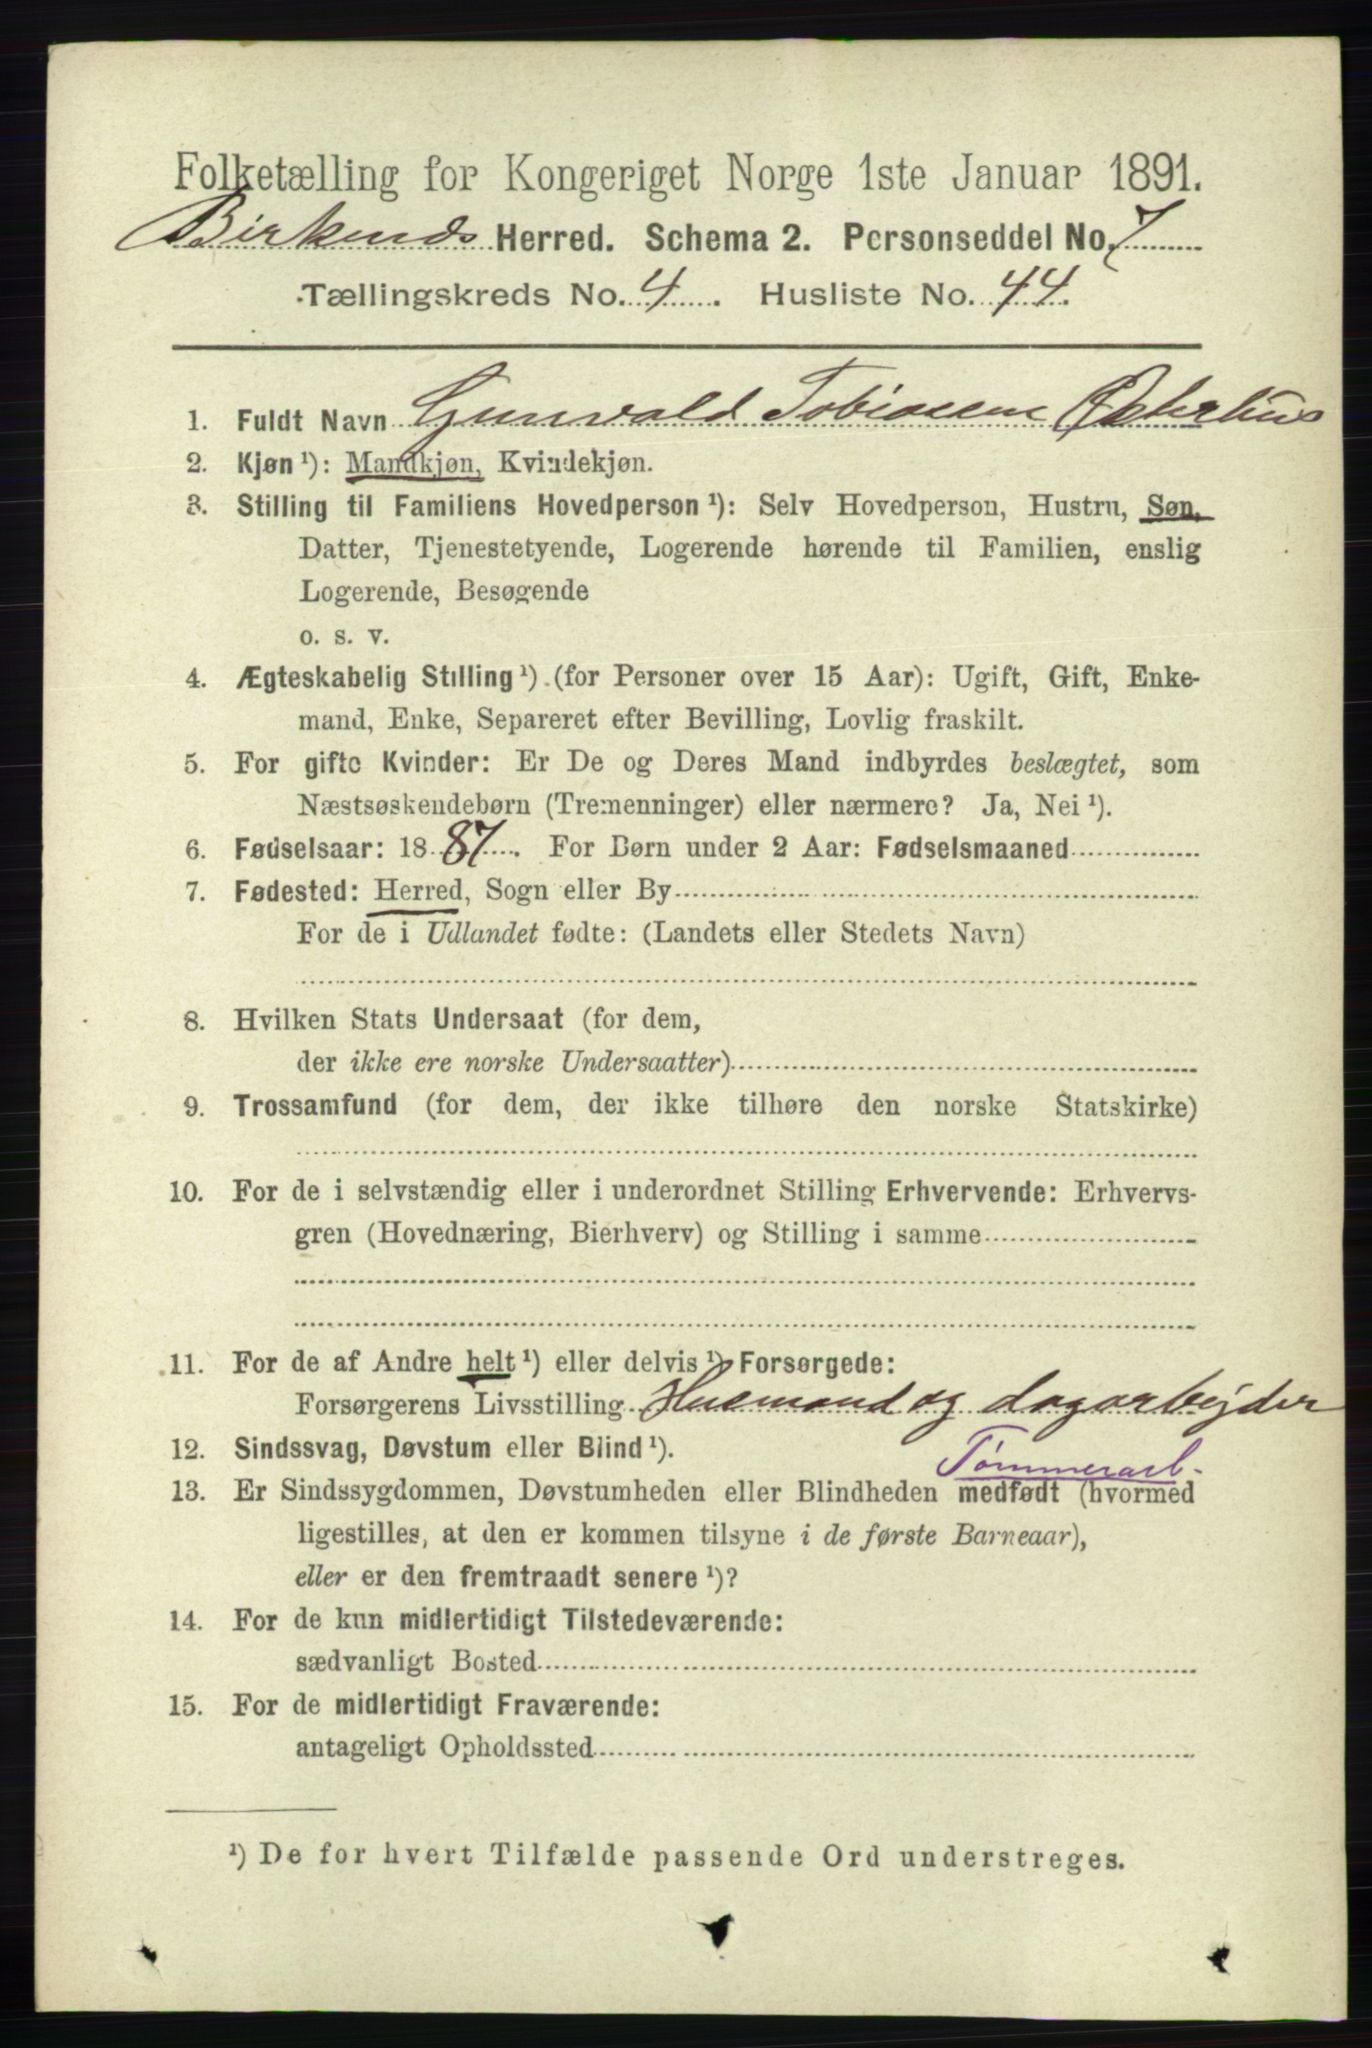 Folketælling for Kongeriget Norge 1ste Januar 1891.
Birkenæs Herred. Schema 2. Personseddel No. 7
Tællingskreds No. 4. Husliste No. 44.
1. Fuldt Navn Gunvald Tobiassen
2. Kjøn ¹): Mandkjøn, Kvindekjøn.
3. Stilling til Familiens Hovedperson ¹): Selv Hovedperson, Hustru, Søn,
Datter, Tjenestetyende, Logerende hørende til Familien, enslig
Logerende, Besøgende
o. s. v.
4. Ægteskabelig Stilling ¹) (for Personer over 15 Aar): Ugift, Gift, Enke-
mand, Enke, Separeret efter Bevilling, Lovlig fraskilt.
5. For gifte Kvinder: Er De og Deres Mand indbyrdes beslægtet, som
Næstsøskendebørn (Tremenninger) eller nærmere? Ja, Nei ¹).
6. Fødselsaar: 1887. For Børn under 2 Aar: Fødselsmaaned
7. Fødested: Herred, Sogn eller By
For de i Udlandet fødte: (Landets eller Stedets Navn)
8. Hvilken Stats Undersaat (for dem,
der ikke ere norske Undersaatter)
9. Trossamfund (for dem, der ikke tilhøre den norske Statskirke)
10. For de i selvstændig eller i underordnet Stilling Erhvervende: Erhvervs-
gren (Hovednæring, Bierhverv) og Stilling i samme
11. For de af Andre helt ¹) eller delvis ¹) Forsørgede:
Forsørgerens Livsstilling Husmand og dagarbejder
12. Sindssvag, Døvstum eller Blind ¹).
Tømmerarb.
13. Er Sindssygdommen, Døvstumheden eller Blindheden medfødt (hvormed
ligestilles, at den er kommen tilsyne i de første Barneaar),
eller er den fremtraadt senere ¹)?
14. For de kun midlertidigt Tilstedeværende:
sædvanligt Bosted
15. For de midlertidigt Fraværende:
antageligt Opholdssted
¹) De for hvert Tilfælde passende Ord understreges.